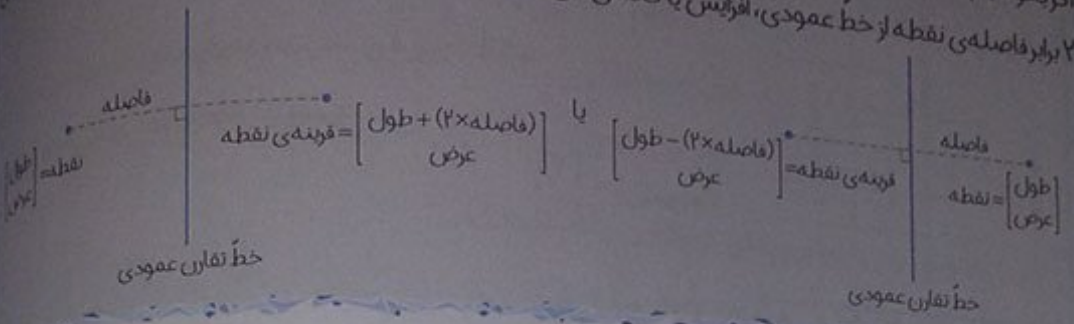 ۲ برابر فاصله‌ی نقطه از خط عمودی، افزایش یا
فاصله
نقطه = [طول عرض]
قرینه‌ی نقطه = [طول + (۲×فاصله) عرض]
خطّ تقارن عمودی
یا
فاصله
نقطه = [طول عرض]
قرینه‌ی نقطه = [طول − (۲×فاصله) عرض]
خطّ تقارن عمودی